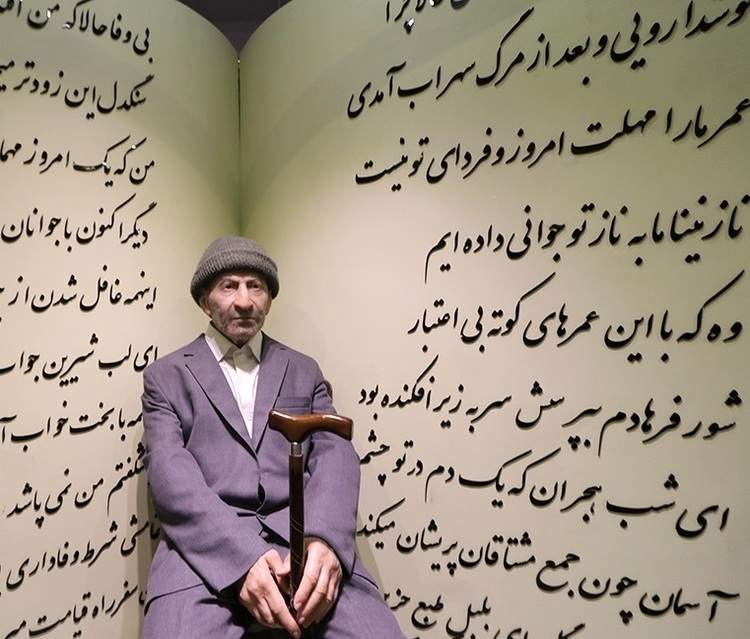 حالا چرا
نوشدارویی و بعد از مرگ سهراب آمدی
عمر ما را مهلت امروز و فردای تو نیست
نازنینا ما به ناز تو جوانی داده ایم
وه که با این عمرهای کوته بی اعتبار
شور فرهادم بپرسش سر به زیر افکنده بود
ای شب هجران که یک دم در تو چشم
آسمان چون جمع مشتاقان پریشان میکند
بلبل طبع حزین
بی وفا حالا که من
سنگدل این زودتر
من که یک امروز
دیگر اکنون با جوانان
اینهمه غافل شدن از
ای لب شیرین جواب
با بخت خواب
شگفتم من نمی پاشد
شرط وفاداری
سفر راه قیامت